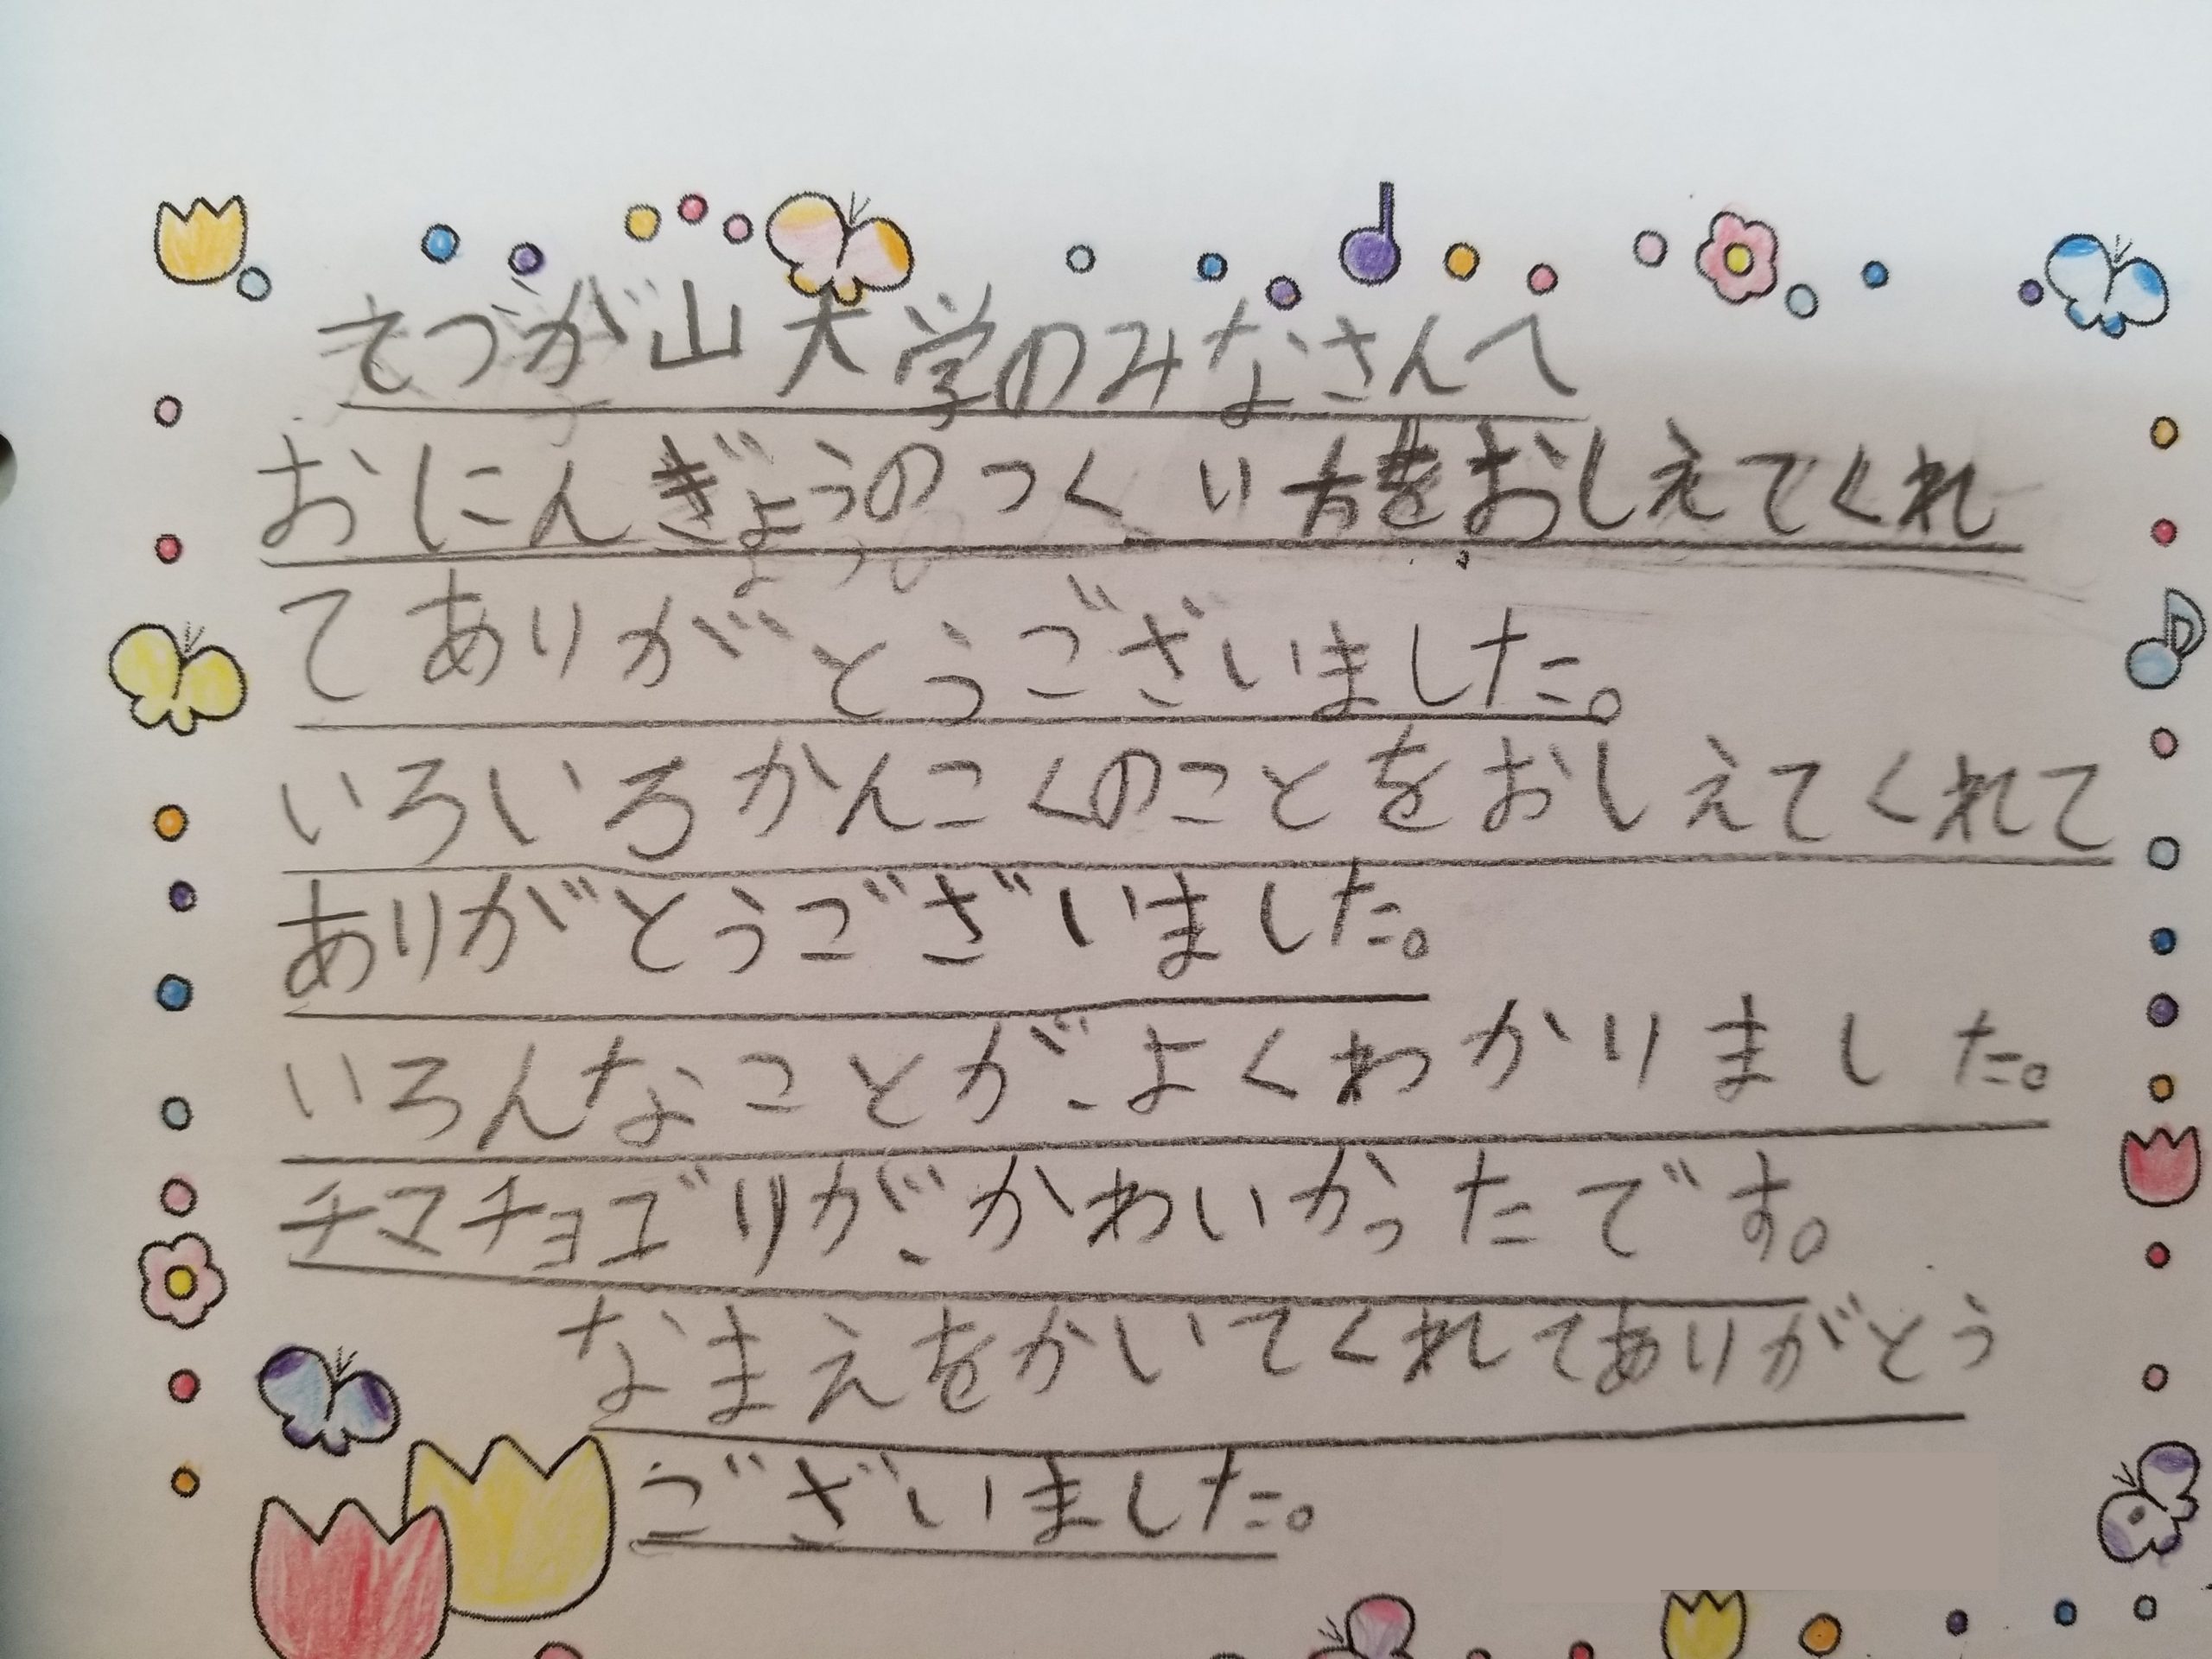 てづが山大学のみなさんへ
おにんぎょうのつくり方をおしえてくれ
てありがとうございました。
いろいろかんこくのことをおしえてくれて
ありがとうございました。
いろんなことが、よくわかりました。
チマチョゴリが、かわいかったです。
なまえをかいてくれてありがとう
ございました。